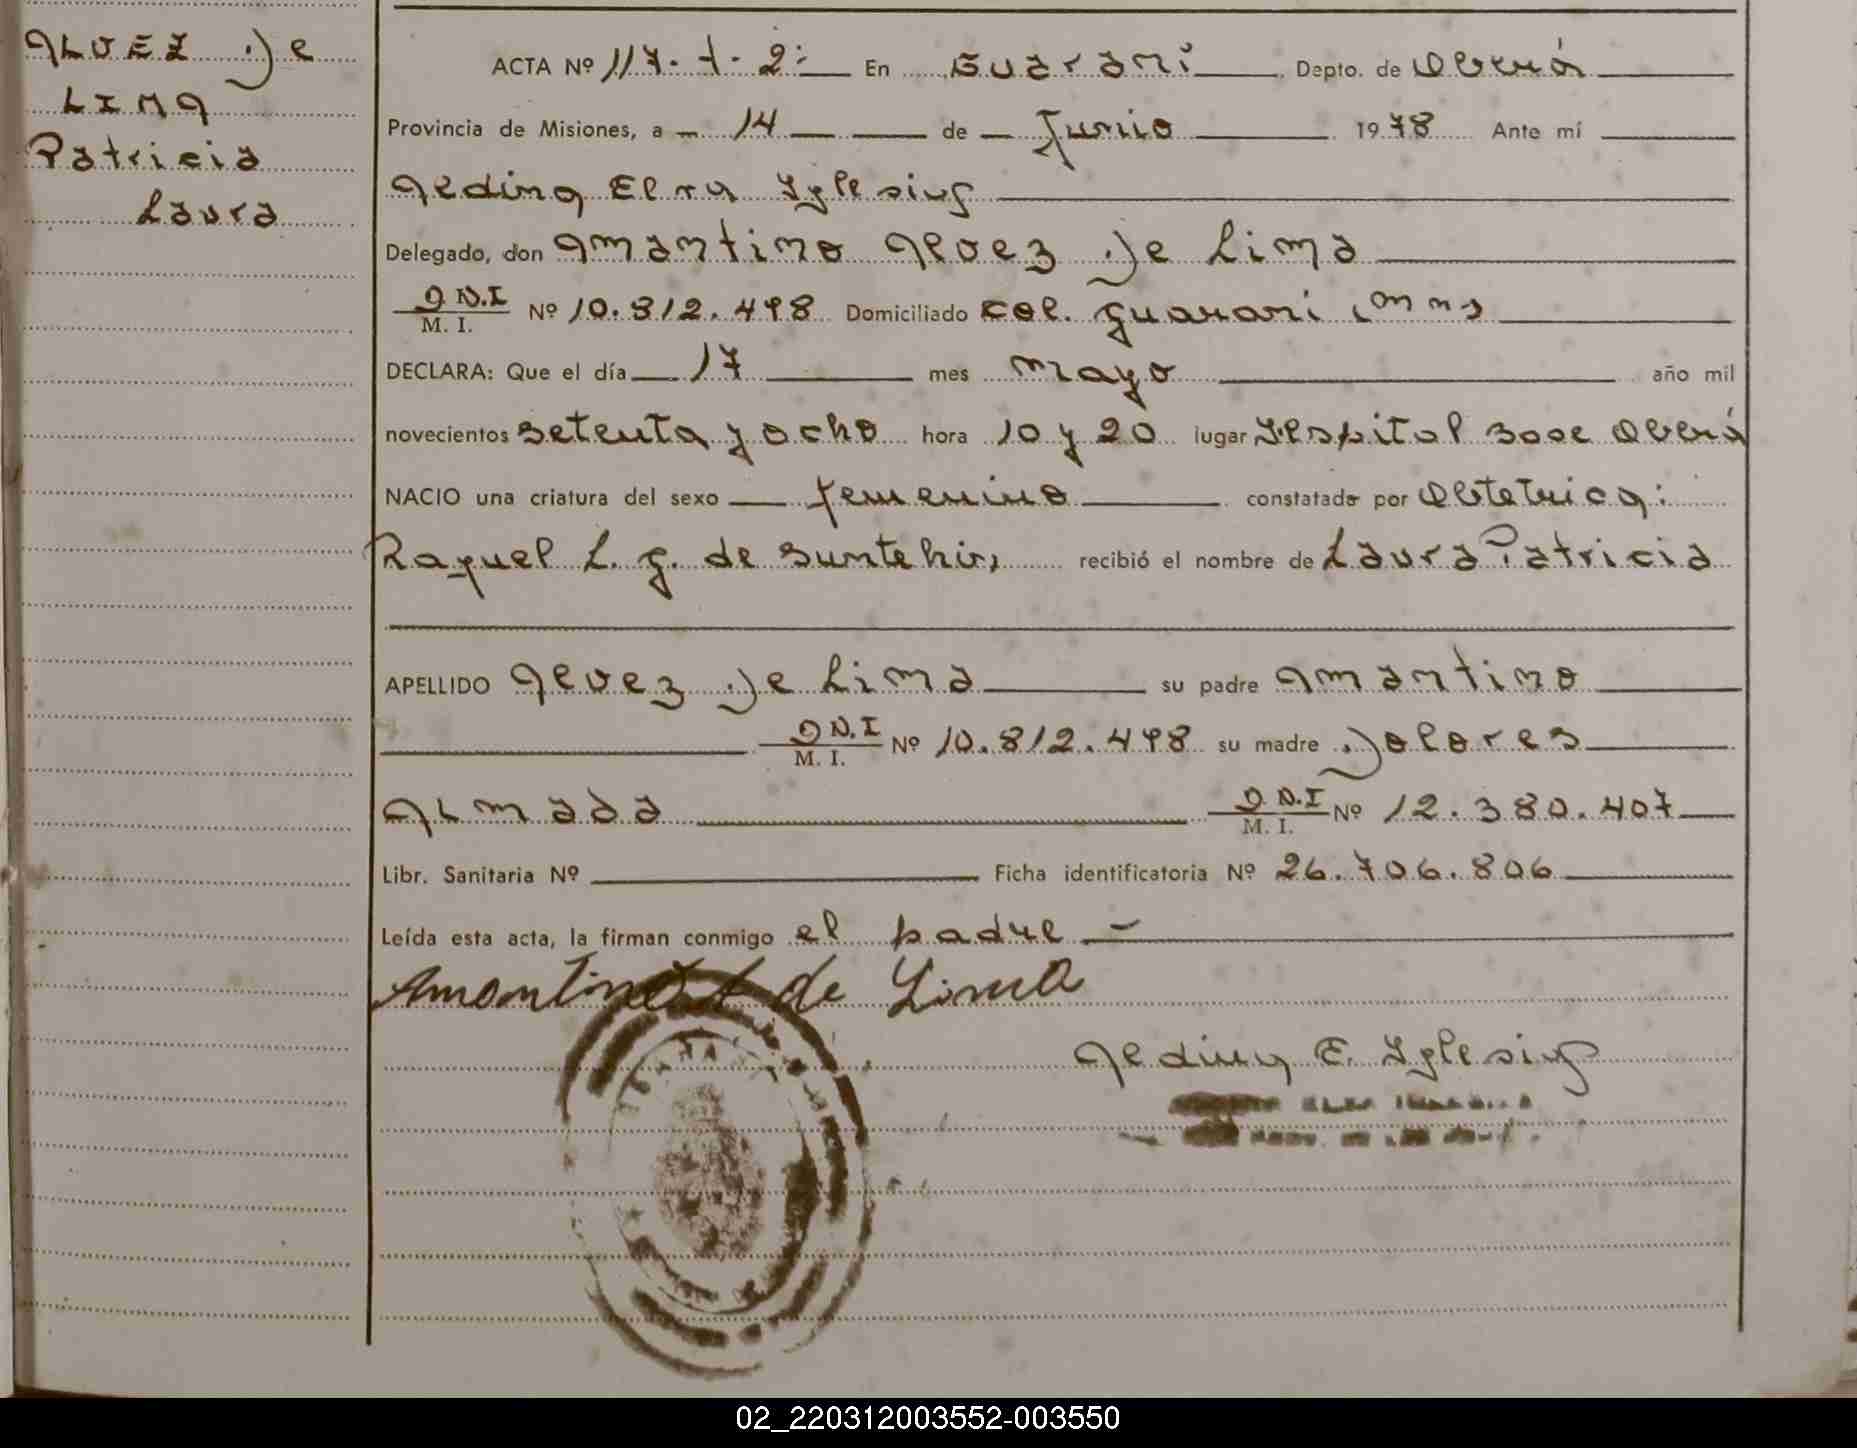 ALVEZ De
LIMA
Patricia
Laura
ACTA Nº 117. t. 2: En Guarani Depto. de Oberá
Provincia de Misiones, a 14 de Junio 1978 Ante mí
Aedina Elva Iglesias
Delegado, don Amantino Alvez De Lima
D.N.I
M. I. Nº 10.812.498 Domiciliado Col. Guarani
DECLARA: Que el día 17 mes mayo año mil
novecientos setenta y ocho hora 10 y 20 lugar Hospital Oberá
NACIO una criatura del sexo femenino constatado por Obtetrica:
Raquel L. G. de recibió el nombre de Laura Patricia
APELLIDO Alvez De Lima su padre Amantino
D.N.I
M. I. Nº 10.812.498 su madre Dolores
ALmada D.N.I
M. I. Nº 12.380.407
Libr. Sanitaria Nº Ficha identificatoria Nº 26.706.806
Leída esta acta, la firman conmigo el padre
Amantino A de Lima
E. Iglesias
02_220312003552-003550